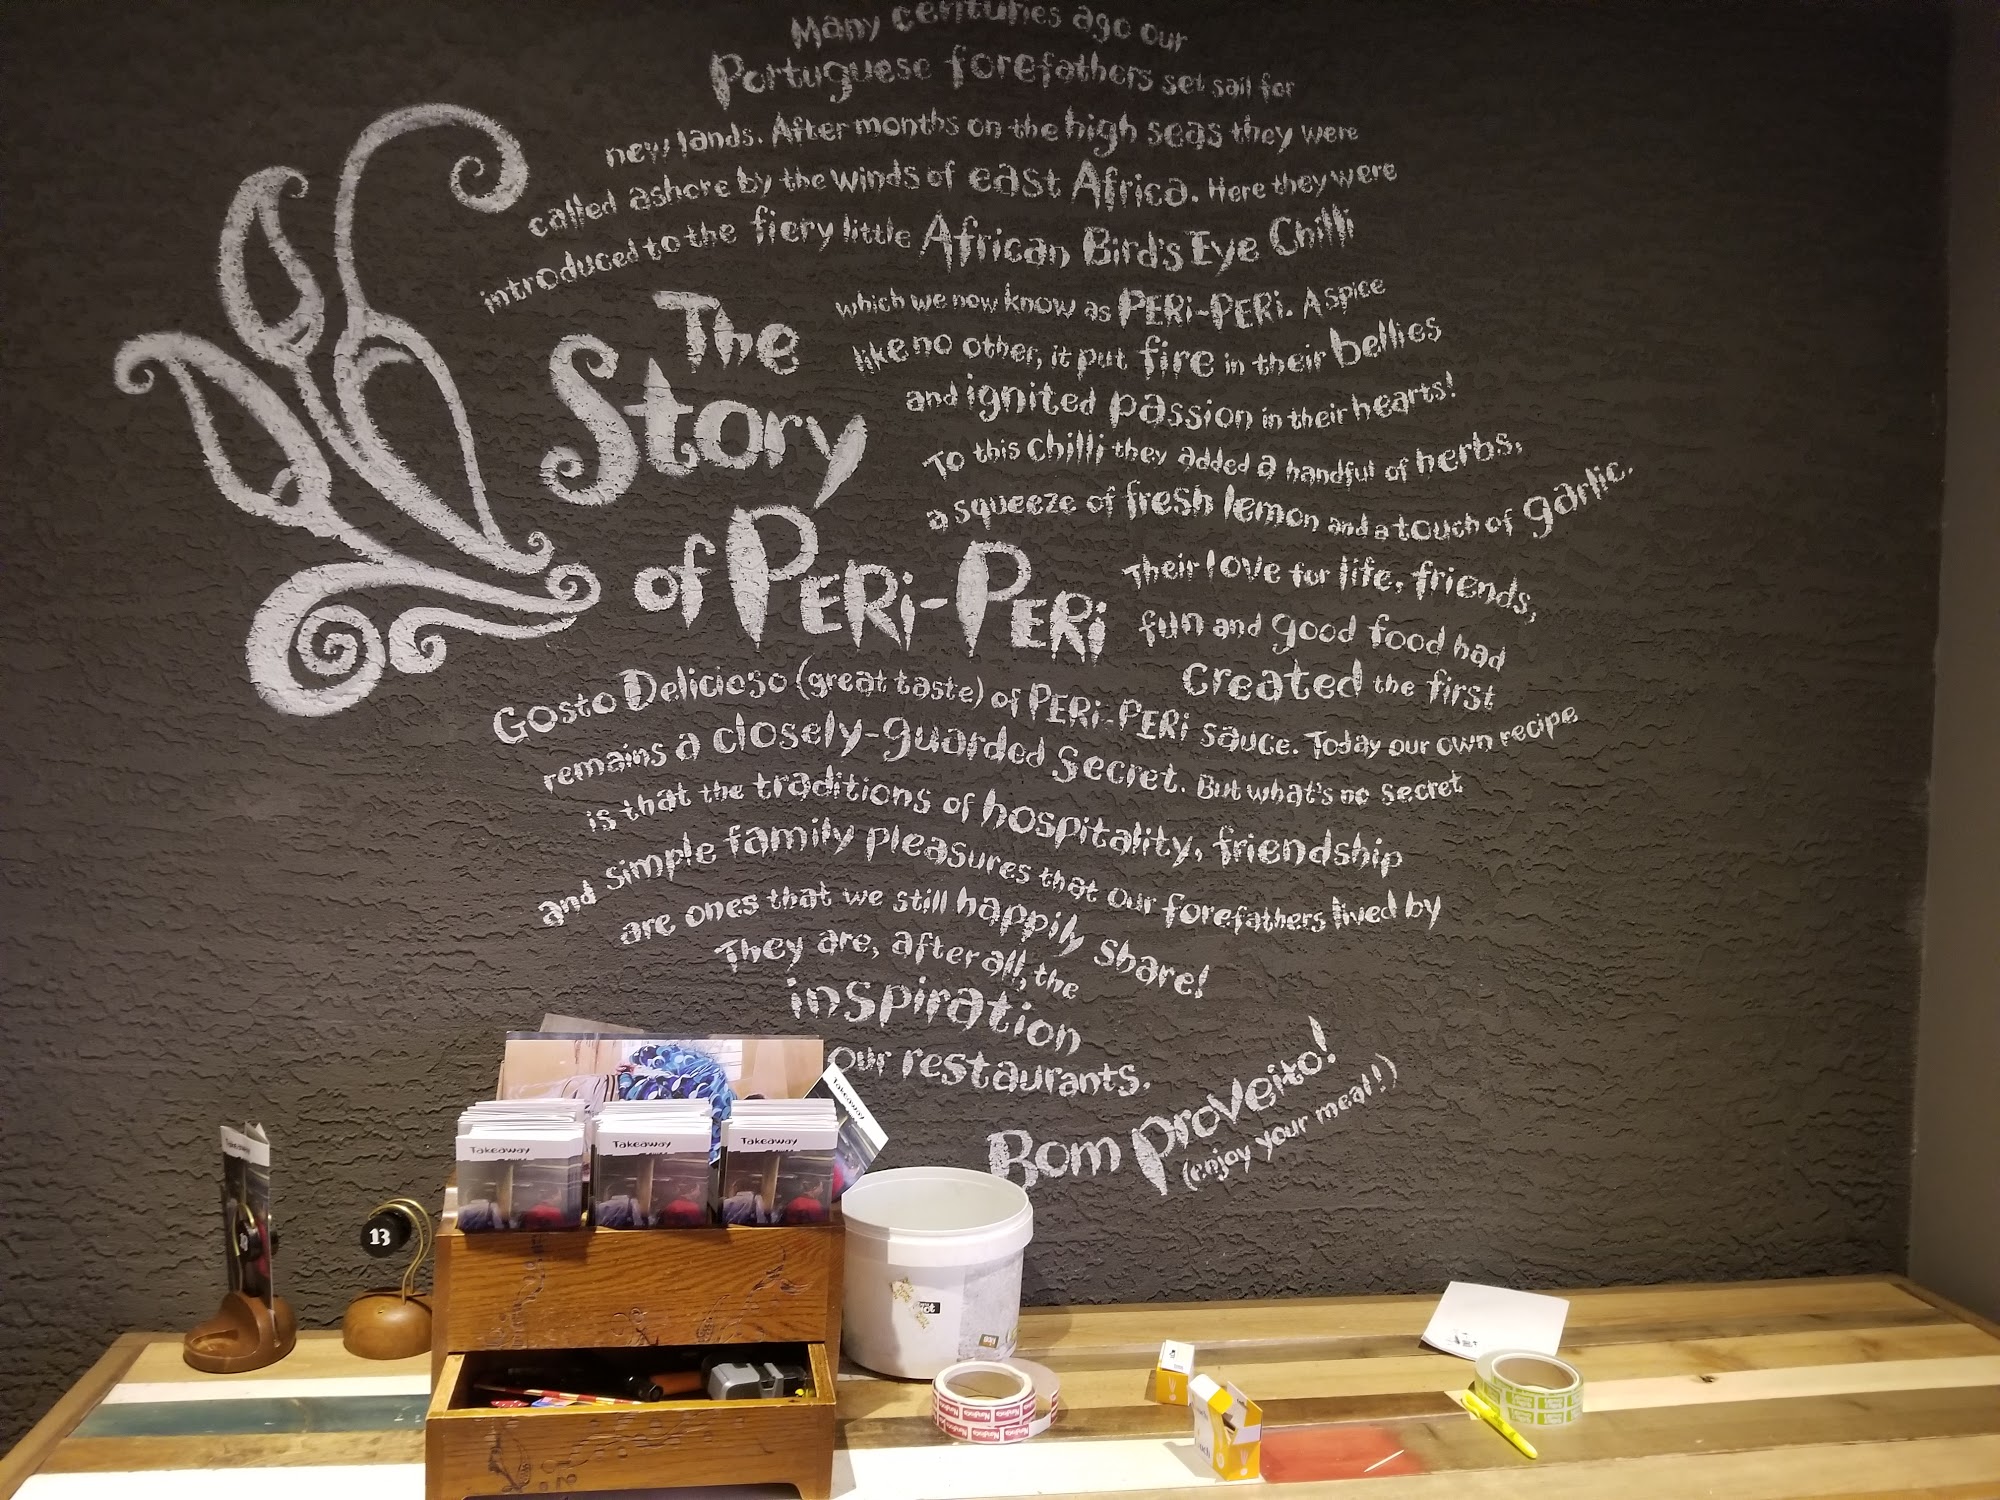 Many centuries ago our
Portuguese forefathers set sail for
new lands. After months on the high seas they were
called ashore by the winds of east Africa. Here they were
introduced to the fiery little African Bird's Eye Chilli
which we now know as PERi-PERi. A spice
like no other, it put fire in their bellies
and ignited passion in their hearts!
To this chilli they added a handful of herbs,
a squeeze of fresh lemon and a touch of garlic.
Their love for life, friends,
fun and good food had
created the first
The
Story
of PERi-PERi
Gosto Delicioso (great taste) of PERi-PERi sauce. Today our own recipe
remains a closely-guarded secret. But what's no secret
is that the traditions of hospitality, friendship
and simple family pleasures that our forefathers lived by
are ones that we still happily share!
They are, after all, the
inspiration
our restaurants.
Bom proveito!
(enjoy your meal!)
Takeaway
Takeaway
Takeaway
Takeaway
13
Nando's